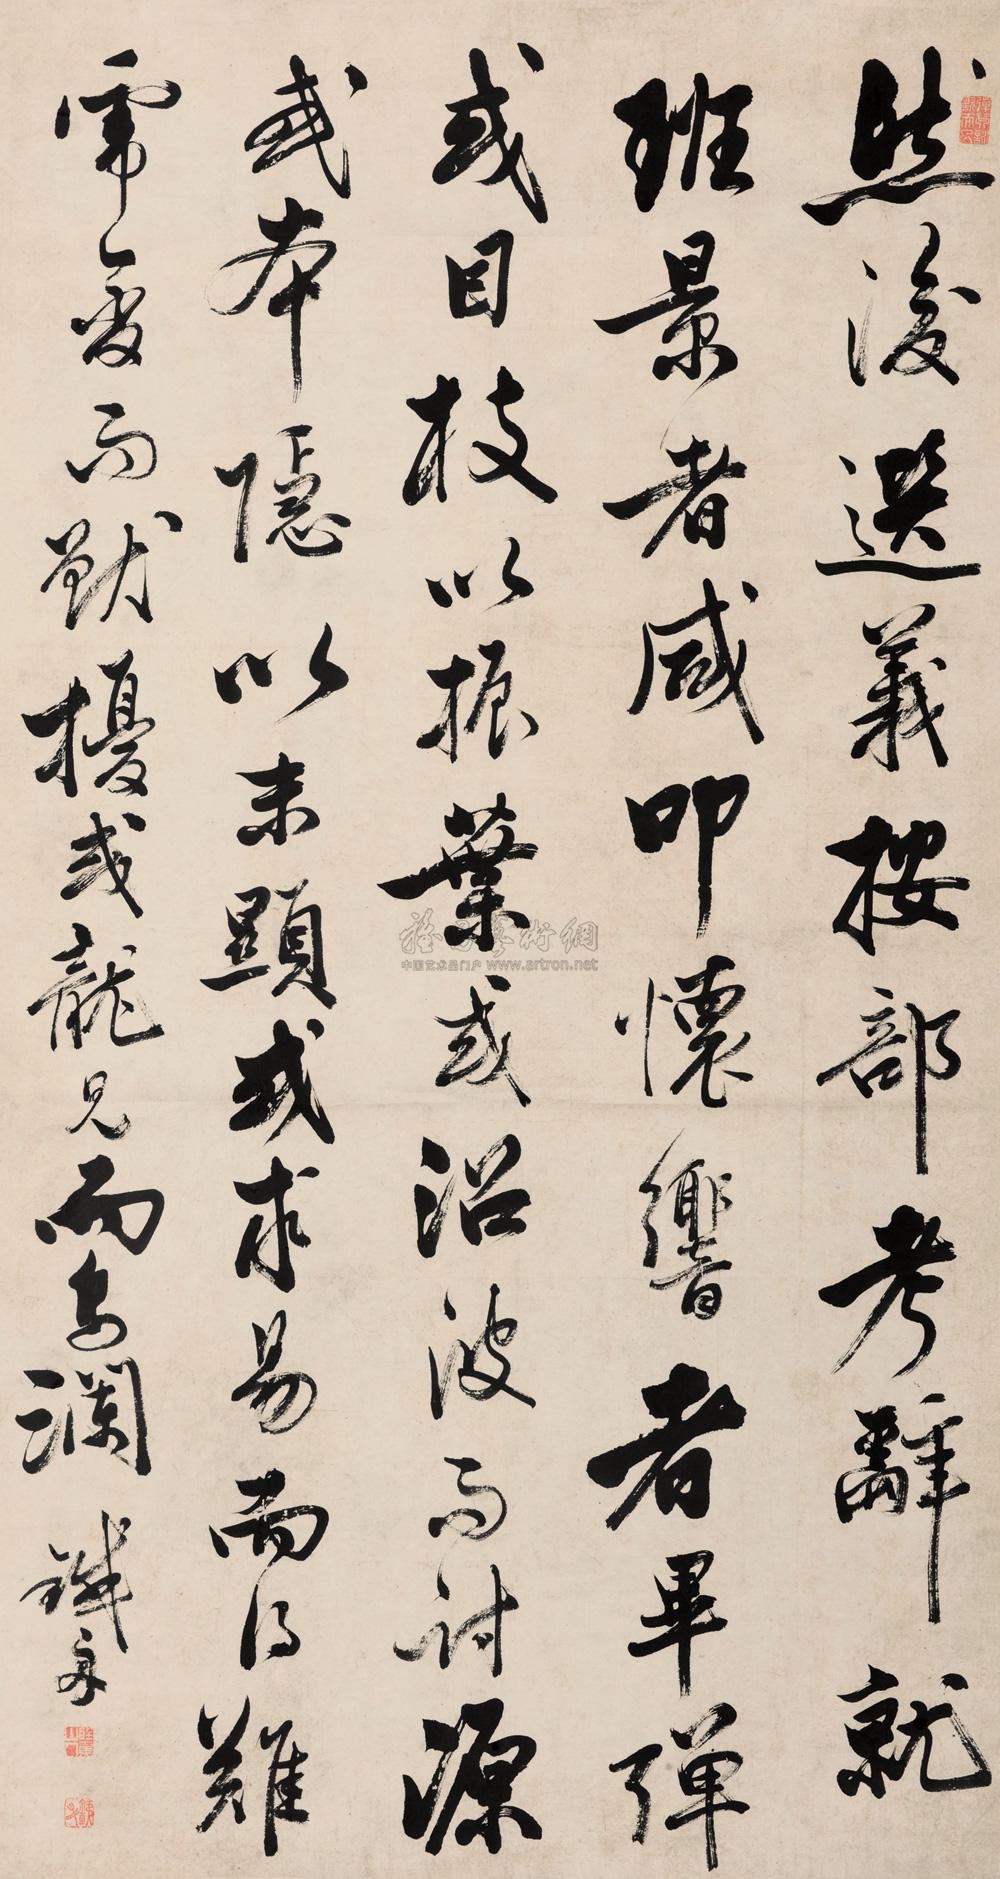 然後選義按部考辭就
班景者咸叩懷響者畢彈
或因枝以振葉或沿波而討源
或本隱以末顯或求易而得難
虎變而獸擾或龍見而鳥瀾 鐵保
雅昌藝術網
中国艺术品门户 www.artron.net